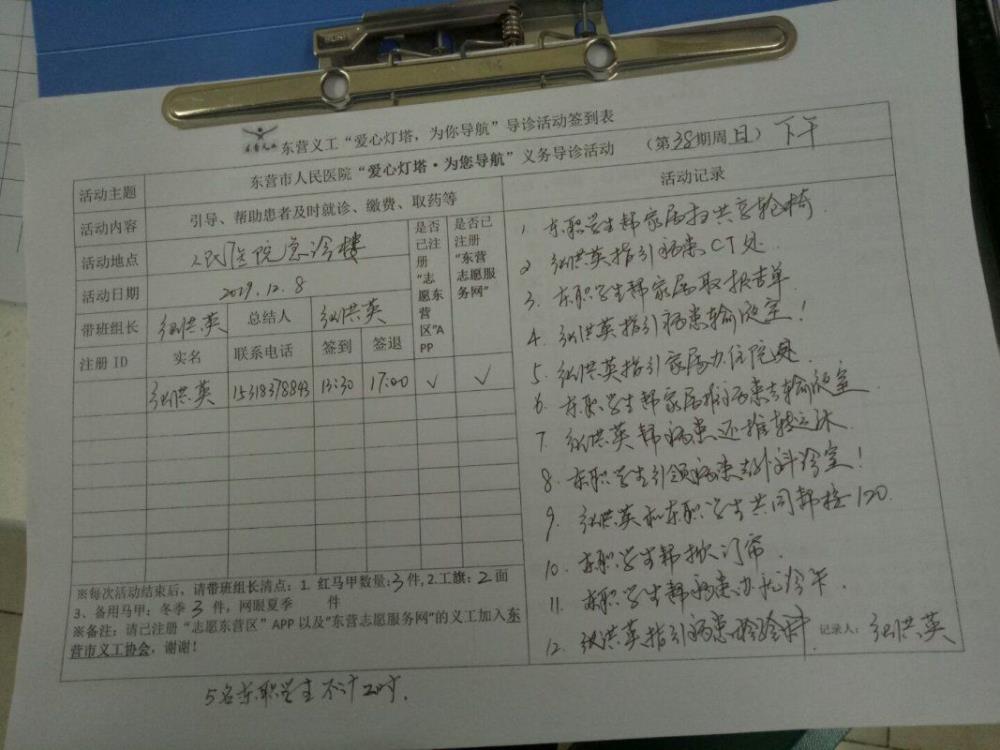 东营义工“爱心灯塔，为你导航”导诊活动签到表
活动主题 东营市人民医院“爱心灯塔·为您导航”义务导诊活动 （第38期周日）下午
活动内容 引导、帮助患者及时就诊、缴费、取药等
活动地点 人民医院急诊楼
活动日期 2019.12.8
带班组长 纵洪英 总结人 纵洪英
注册ID 实名 联系电话 签到 签退 是否已注册“志愿东营区”APP 是否已注册“东营志愿服务网”
纵洪英 15318378843 13:30 17:00 √ √
※每次活动结束后，请带班组长清点：1. 红马甲数量:3件,2.工旗：2面
3、备用马甲：冬季 3 件，网眼夏季 件
※备注：请已注册“志愿东营区”APP以及“东营志愿服务网”的义工加入东
营市义工协会，谢谢！
活动记录
1. 东职学生帮家属扫共享轮椅
2 纵洪英指引病患CT处
3. 东职学生帮家属取报告单
4. 纵洪英指引病患输液室！
5. 纵洪英指引家属办住院处
6 东职学生帮家属推病患去输液室
7 纵洪英帮病患还推转运床
8. 东职学生引领病患去外科诊室！
9. 纵洪英和东职学生共同帮接120.
10. 东职学生帮掀门帘.
11. 东职学生帮病患办就诊卡.
12. 纵洪英指引病患 记录人：纵洪英
5名东职学生不计工时.